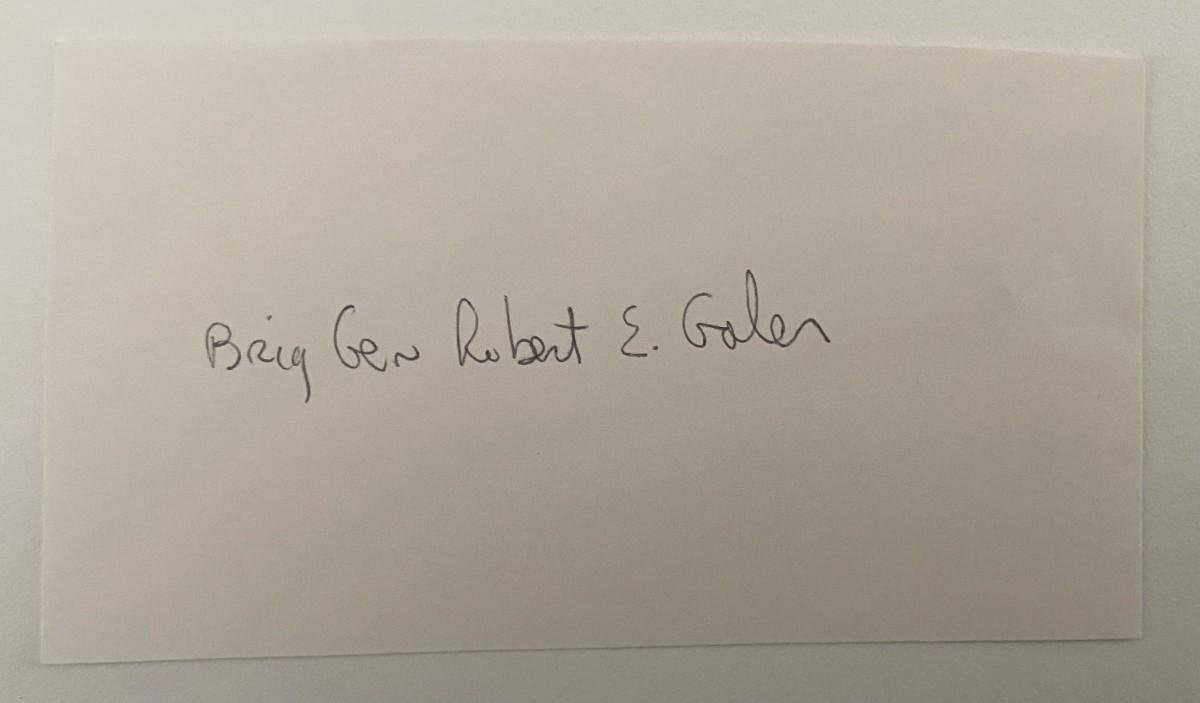 Brig Gen Robert E. Galer